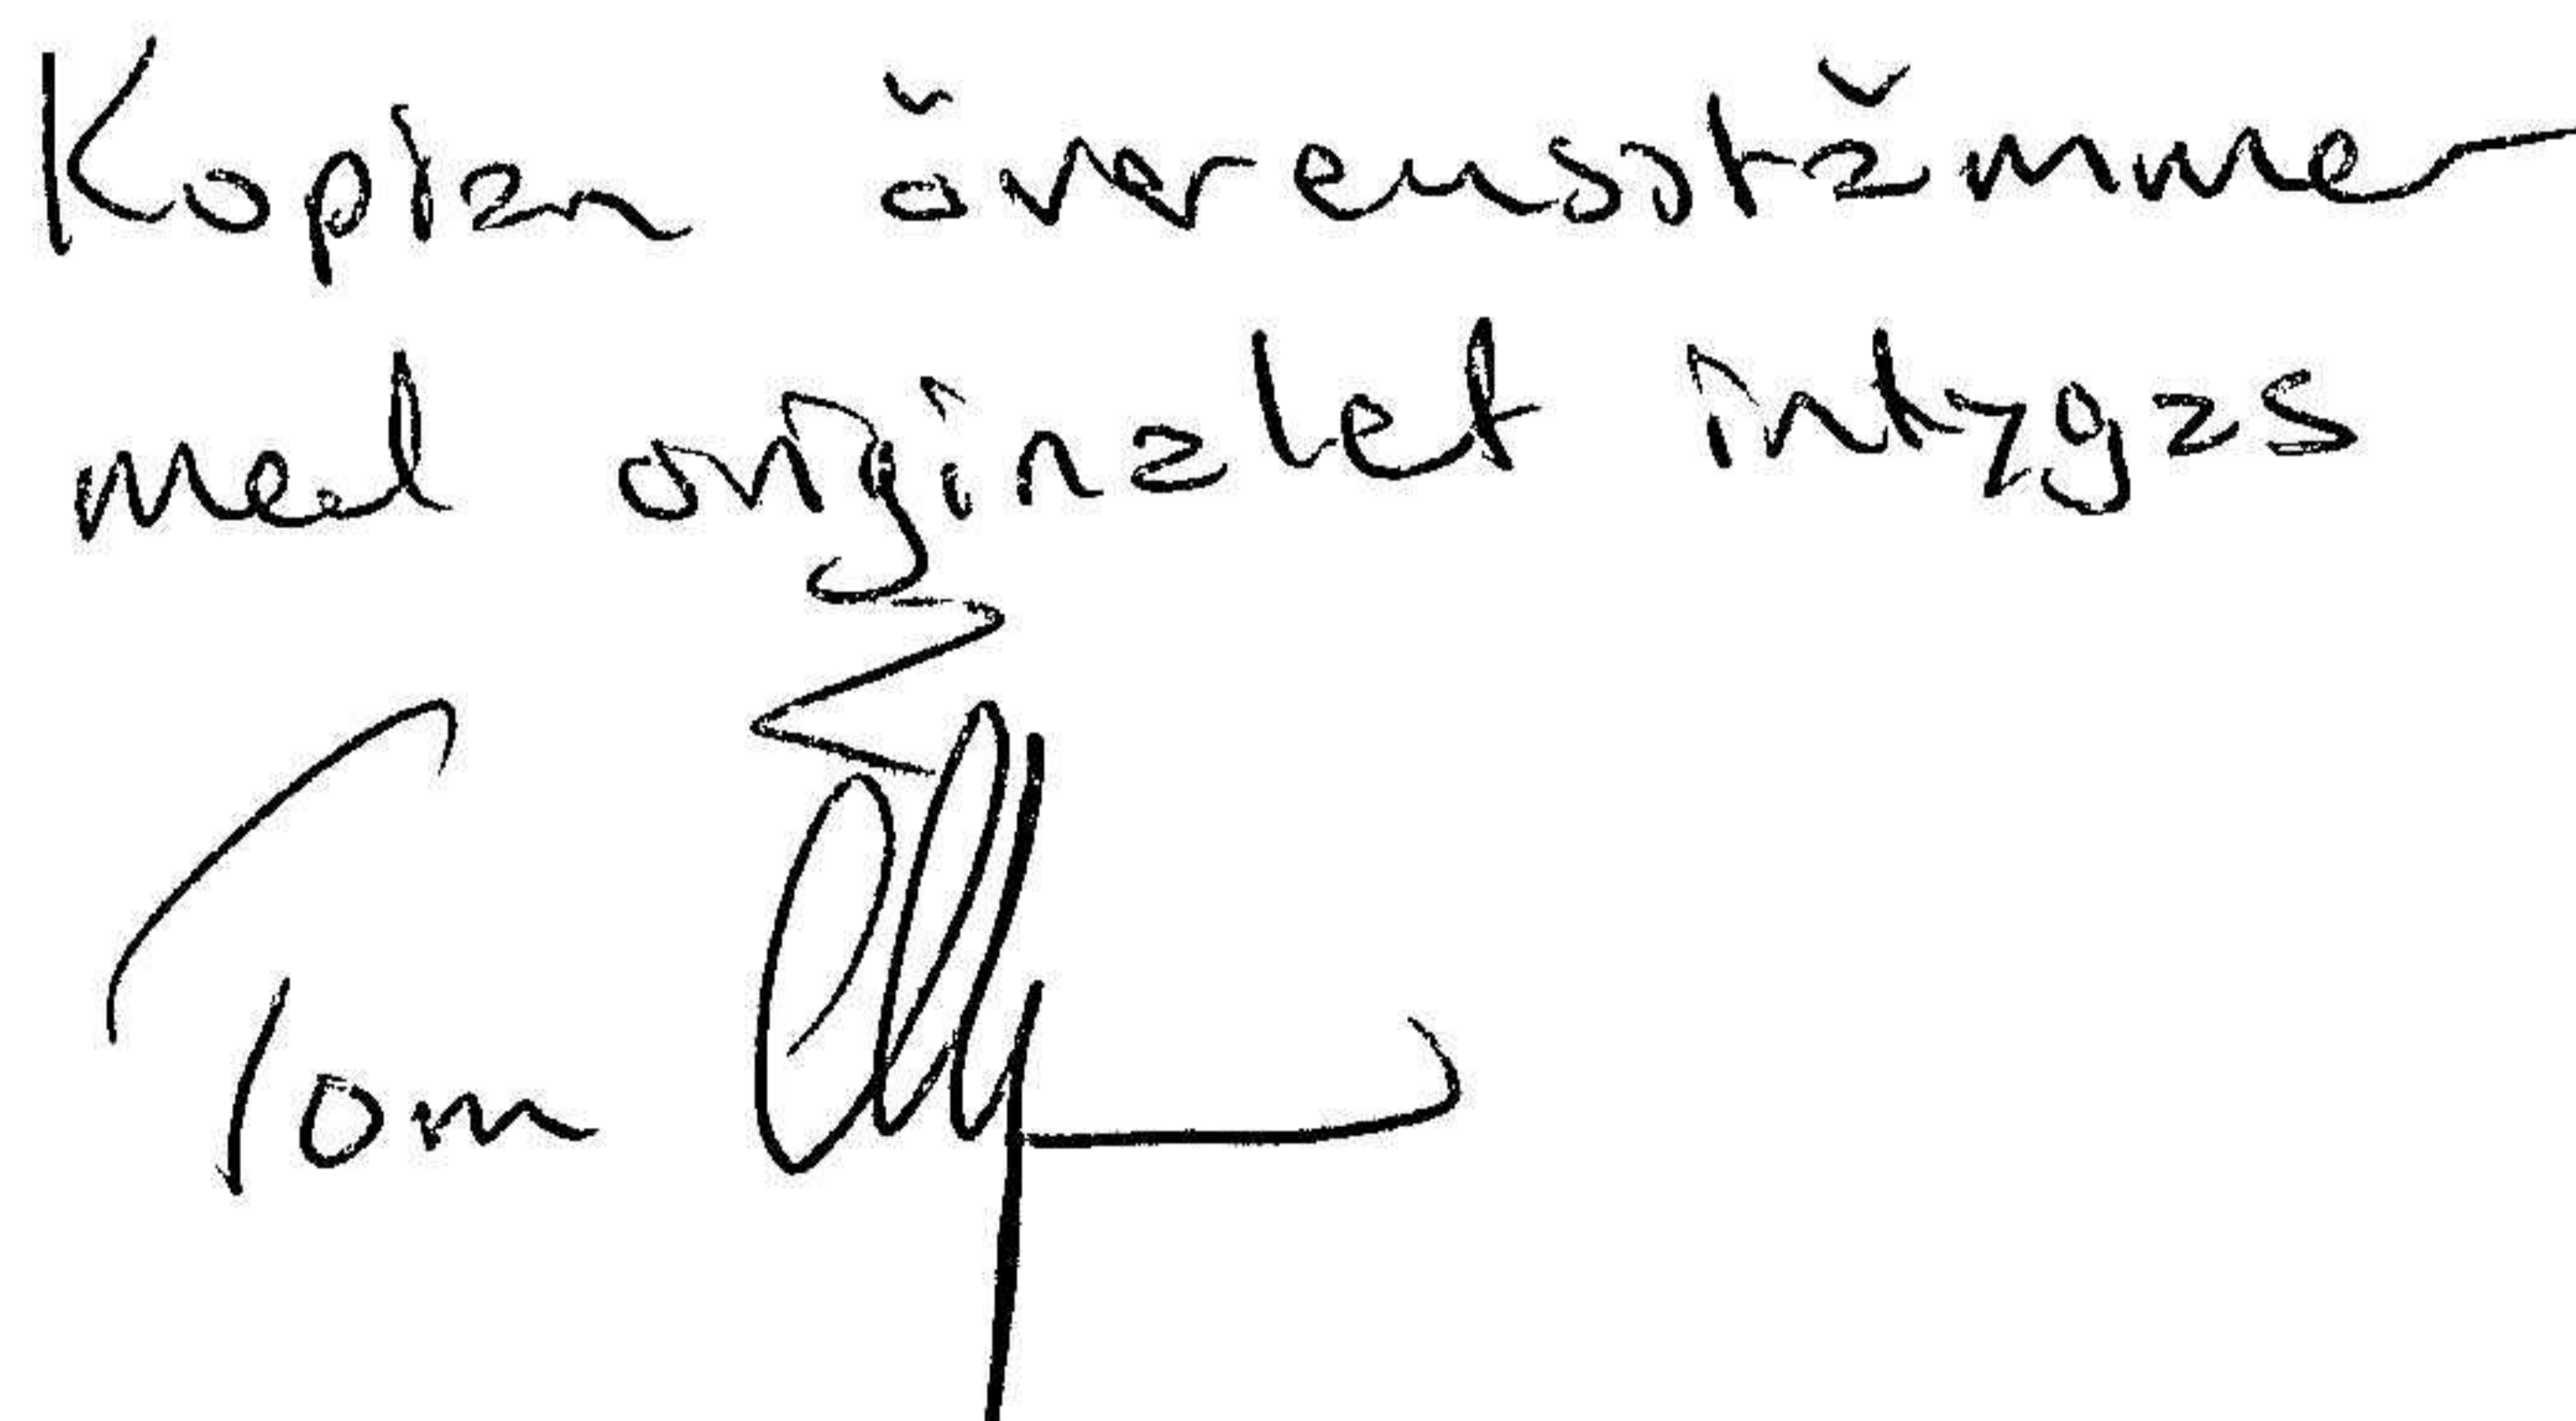 Kopian överensstämmer
med originalet intygas
Tom